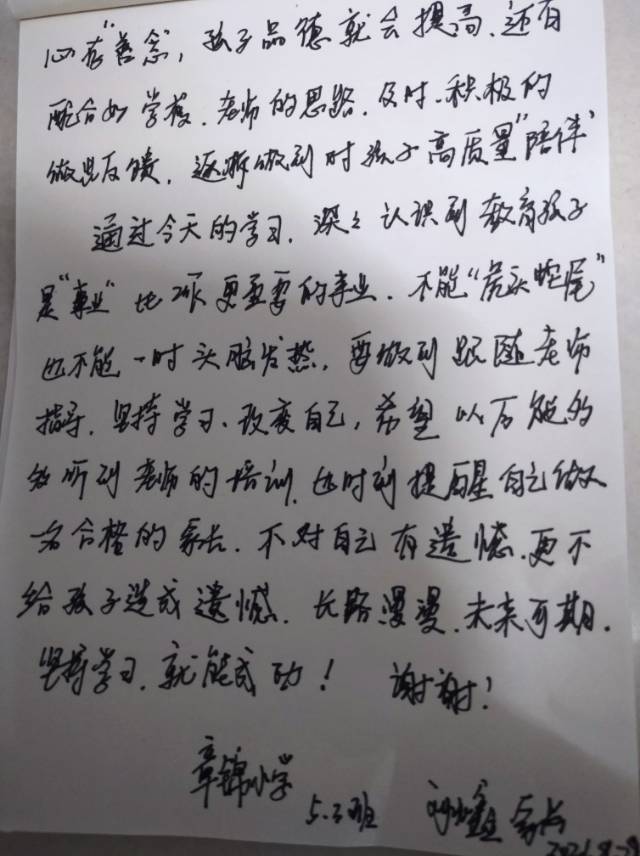 心存"善念"，孩子品德就会提高、还有
配合如学校、老师的思路、及时、积极的
做出反馈，逐渐做到对孩子高质量"陪伴"
通过今天的学习、深深认识到教育孩子
是"事业"比啥更重要的事业、不能"虎头蛇尾"
也不能一时头脑发热，要做到跟随老师
指导、坚持学习、改变自己，希望以后能多
多听到老师的培训、也时刻提醒自己做
名合格的家长、不对自己有遗憾、更不
给孩子造成遗憾、长路漫漫、未来可期、
坚持学习、就能成功！ 谢谢！
章锦小学
5.3班 家长